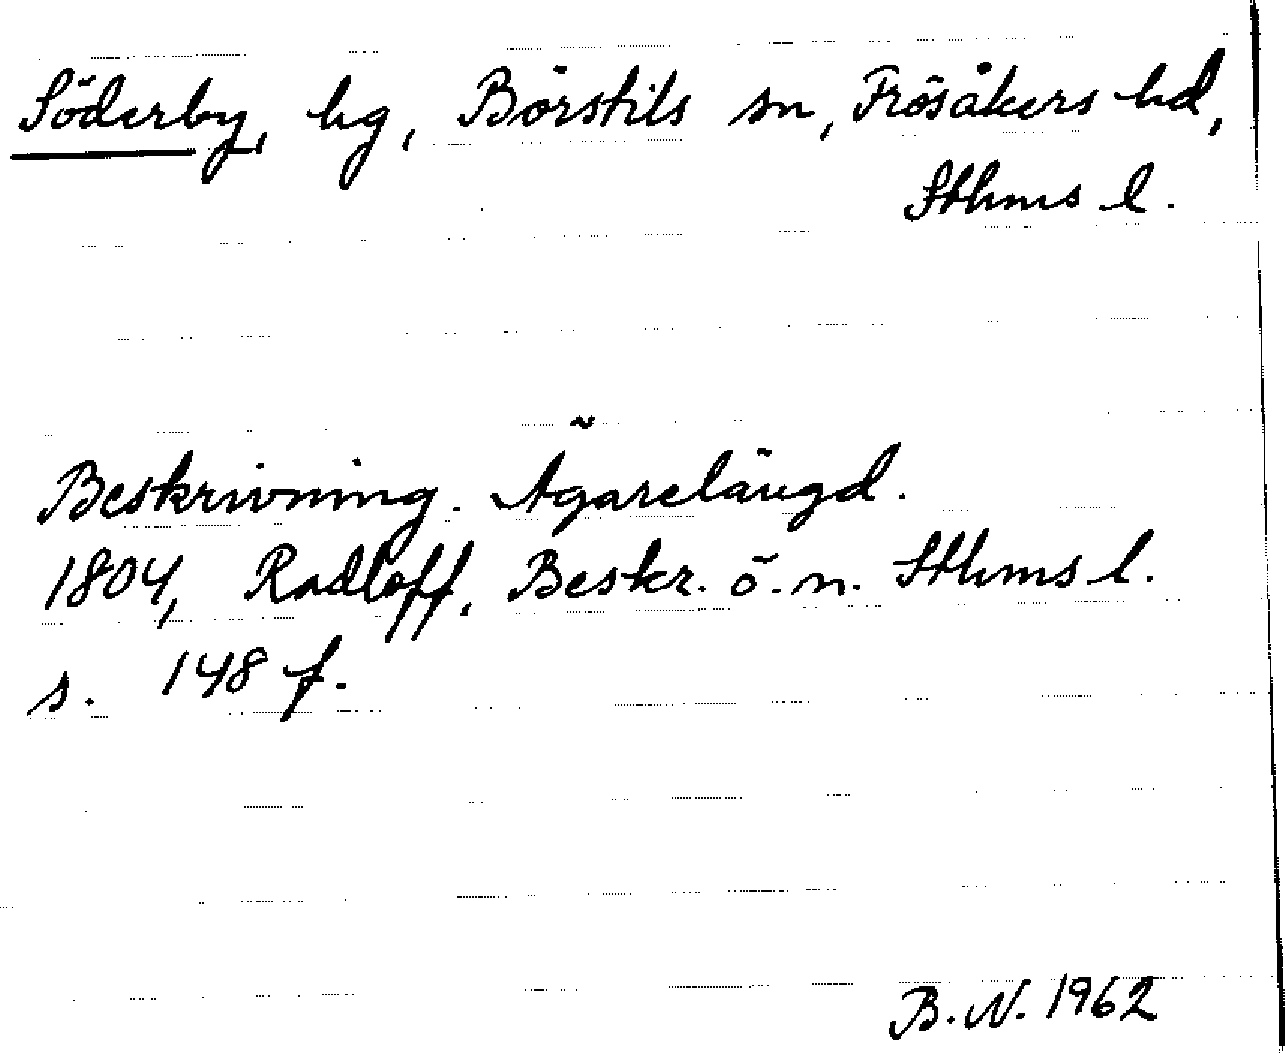 Söderby, hg, Börstils sn, Frösåkers hd,
Sthms l.
Beskrivning. Ägarelängd.
1804, Radloff, Beskr. ö. n. Sthms l.
s. 148 f.
B. N. 1962